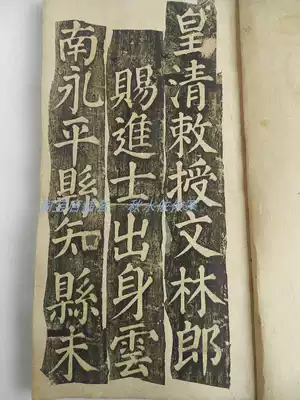 皇清敕授文林郎
賜進士出身雲
南永平縣知縣末